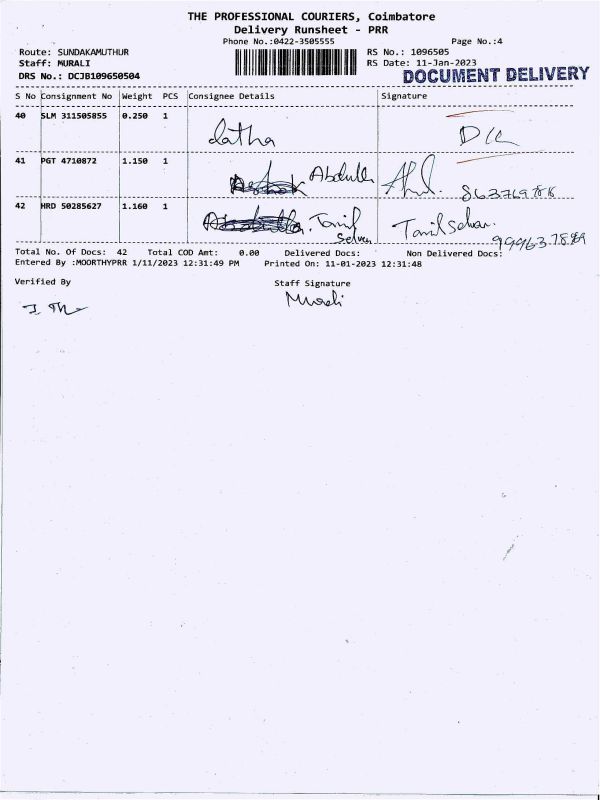 THE PROFESSIONAL COURIERS, Coimbatore
Delivery Runsheet - PRR
Phone No.:0422-3505555 Page No.:4
Route: SUNDAKAMUTHUR RS No.: 1096505
Staff: MURALI RS Date: 11-Jan-2023
DRS No.: DCJB109650504 DOCUMENT DELIVERY
S No Consignment No Weight PCS Consignee Details Signature
40 SLM 311505855 0.250 1
latha
41 PGT 4710872 1.150 1
Abdulla
42 HRD 50285627 1.160 1
Tamil Selvan Tamil Selvan
Total No. Of Docs: 42 Total COD Amt: 0.00 Delivered Docs: Non Delivered Docs:
Entered By :MOORTHYPRR 1/11/2023 12:31:49 PM Printed On: 11-01-2023 12:31:48
Verified By Staff Signature
Murali